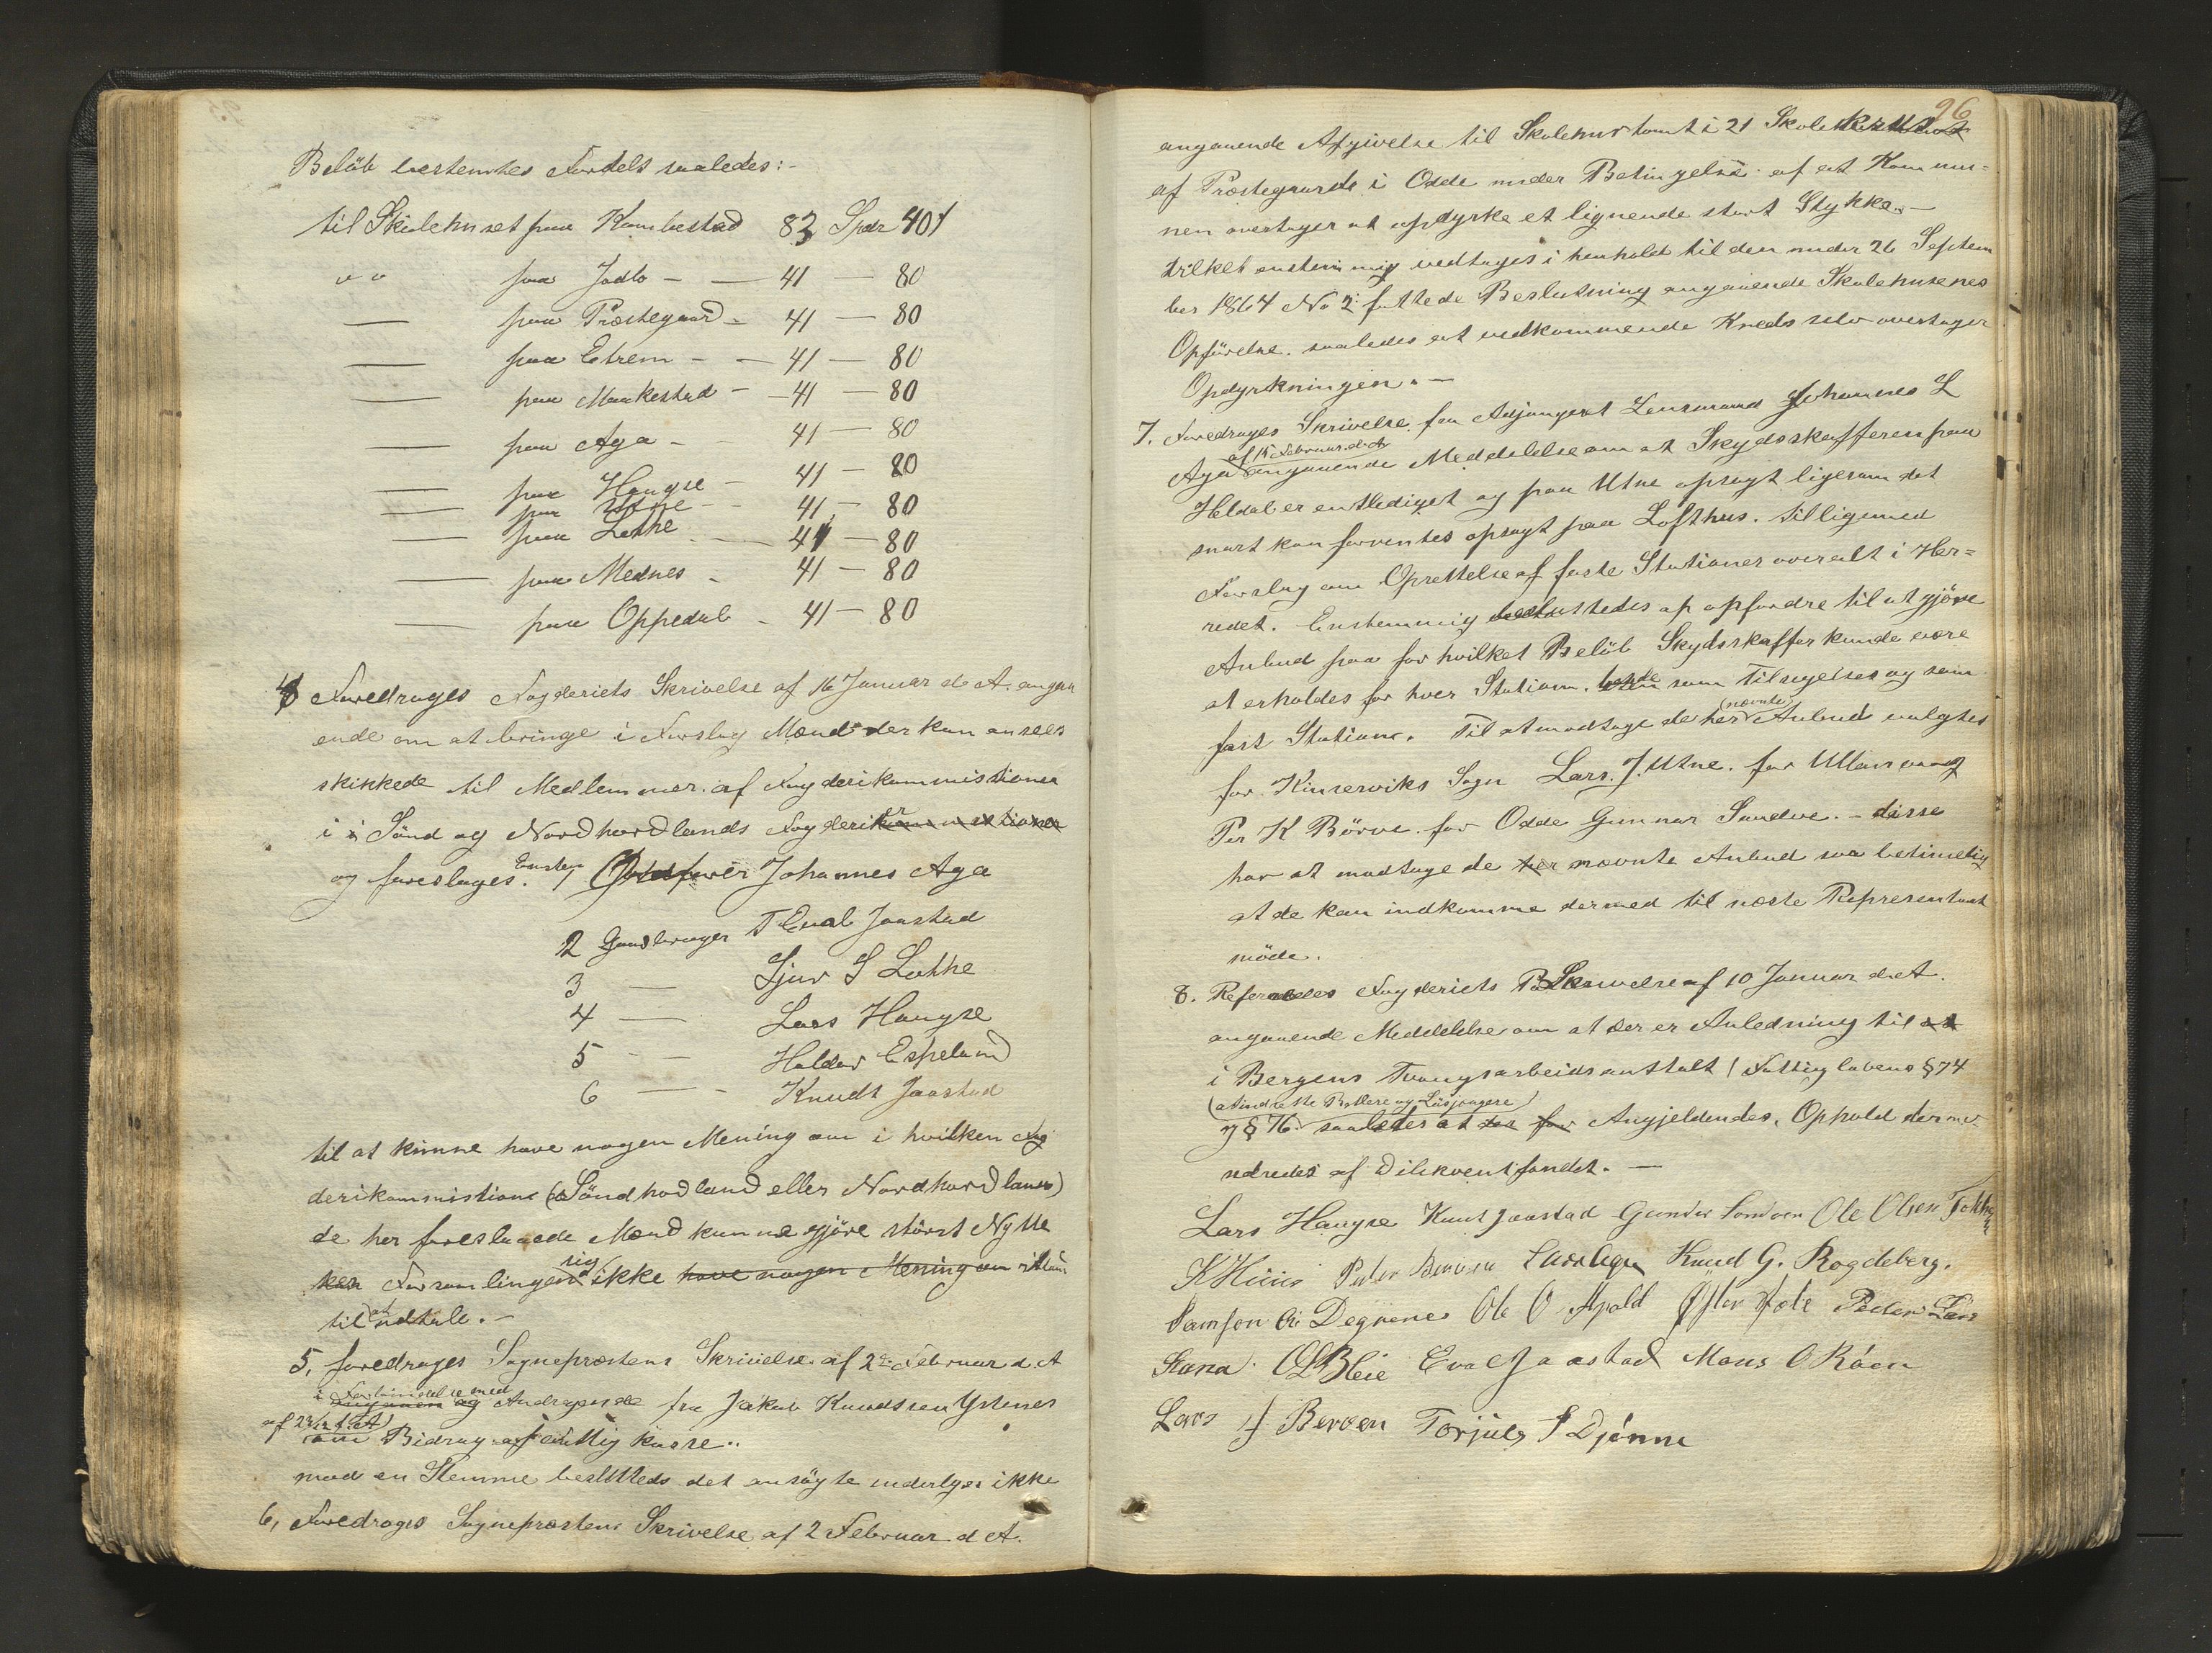 Beløb bestemtes fordelt saaledes:-
til Skolehuset paa Kambestad 83 Spdr 40 s
" " paa Jadlo - — 41 — 80
— paa Præstegaard - 41 — 80
— paa Etrem - — 41 — 80
— paa Maakestad - — 41 — 80
— paa Aga - 41 — 80
— paa Haugse - 41 — 80
— paa Utne - 41 — 80
— paa Lothe - — 41 — 80
— paa Mednes - 41 — 80
— paa Oppedal - 41 — 80
4 Foredroges Fogderiets Skrivelse af 16 Januar d. A. angaa
ende om at bringe i Forslag Mænd der kan ansees
skikkede til Medlemmer af Fogderikommissionen
i Sønd og Nordhordlands Fogderier
og foreslages. Enstem 1 Johannes Aga
2 Gaardbruger T Eval Jaastad
3 — Sjur S Lothe
4 — Lars Haugse
5 - — Haldor Espeland
6 — - Knudt Jaastad
til at kunne have nogen Mening om i hvilken Fog
derikommission (Søndhodland eller Nordhordland)
de her foreslaaede Mænd kunne gjøre størst Nytte
Forsamlingen sig ikke have nogen Mening om istand
til at udtale. -
5, foredroges Sogneprestens Skrivelse af 2den Februar d. A
i Forbindelse med Andragende fra Jakob Knudtsen Ystenes
af d. A.)
om Bidrag af fattigkasse..
mod en Stemme besluttedes det ansøgte inderlges ikke
6, Foredroges Sogneprestens Skrivelse af 2 Februar d A.
96
angaaende Afgivelse til Skolehustomt i 21 Skole
af Præstegaarde i Odde under Betingelse af at Kommu=
nen overtager at opdyrke et lignende stort Stykke. —
hvilket enstemmig vedtages i henhold til den under 26 Septem
ber 1864 No 2 fattede Beslutning angaaende Skolehusenes
Opførelse. saaledes at vedkommende Kreds selv overtager
Opdyrkningen. —
7. Foredroges Skrivelse fra Adjungeret Lensmand Johannes L
af 15 Februar d. A
Aga angaaende Meddelelse om at Skydsskafferen paa
Heldal er entlediget og paa Utne opsagt ligesom det
snart kan forventes opsagt paa Lofthus. tilligemed
Forslag om Oprettelse af faste Stationer overalt i Her=
redet. Enstemmig besluttedes op opfordre til at gjøre
Anbud paa for hvilket Beløb Skydsskaffer kunde være
at erholdes for hver Station. baade som Tilsigelses og som
fast Station. Til at modtage de her (nævnte) Anbud valgtes
for Kinserviks Sogn Lars J. Utne. for Ullensvang
Per K Børve. for Odde Gunnar Sandve. - disse
har at modtage de her nævnte Anbud saa betimelig
at de kan indkomme dermed til næste Representant
møde.
8. Refereredes Fogderiets Skrivelse af 10 Januar d. A.
angaaende Meddelelse om at der er Anledning til at
i Bergens Tvangsarbeidsanstalt (Fattiglovens § 74
(at indsætte Betlere og Løsgjængere)
og § 76. saaledes at Angjeldendes. Ophold der
udredes af Delikventfondet. —
Lars Haugse Knut Jaastad Gunder Sandven Ole Olsen
K Huus Peder Berven Lars Aga Knud G. Rogdeberg.
Samson Degrenes Ole O Apold Peder Lars
O L Bleie Eval Jaastad Mons O Raaen
Lars Berven Torjuls S Djønne